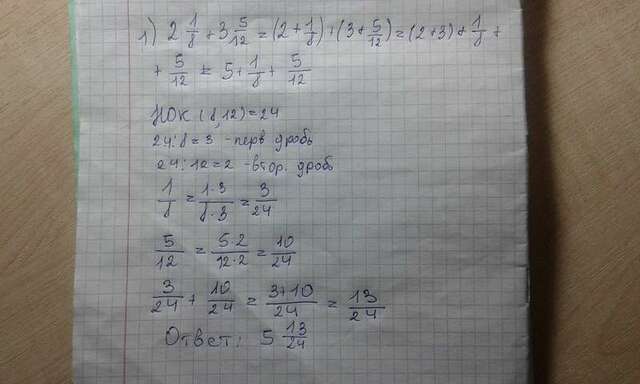 1) 2 1/8 + 3 5/12 = (2 + 1/8) + (3 + 5/12) = (2+3) + 1/8 +
+ 5/12 = 5 + 1/8 + 5/12
НОК (8,12) = 24
24:8 = 3 - перв дробь
24:12 = 2 - втор. дробь
1/8 = 1·3/8·3 = 3/24
5/12 = 5·2/12·2 = 10/24
3/24 + 10/24 = 3+10/24 = 13/24
Ответ: 5 13/24